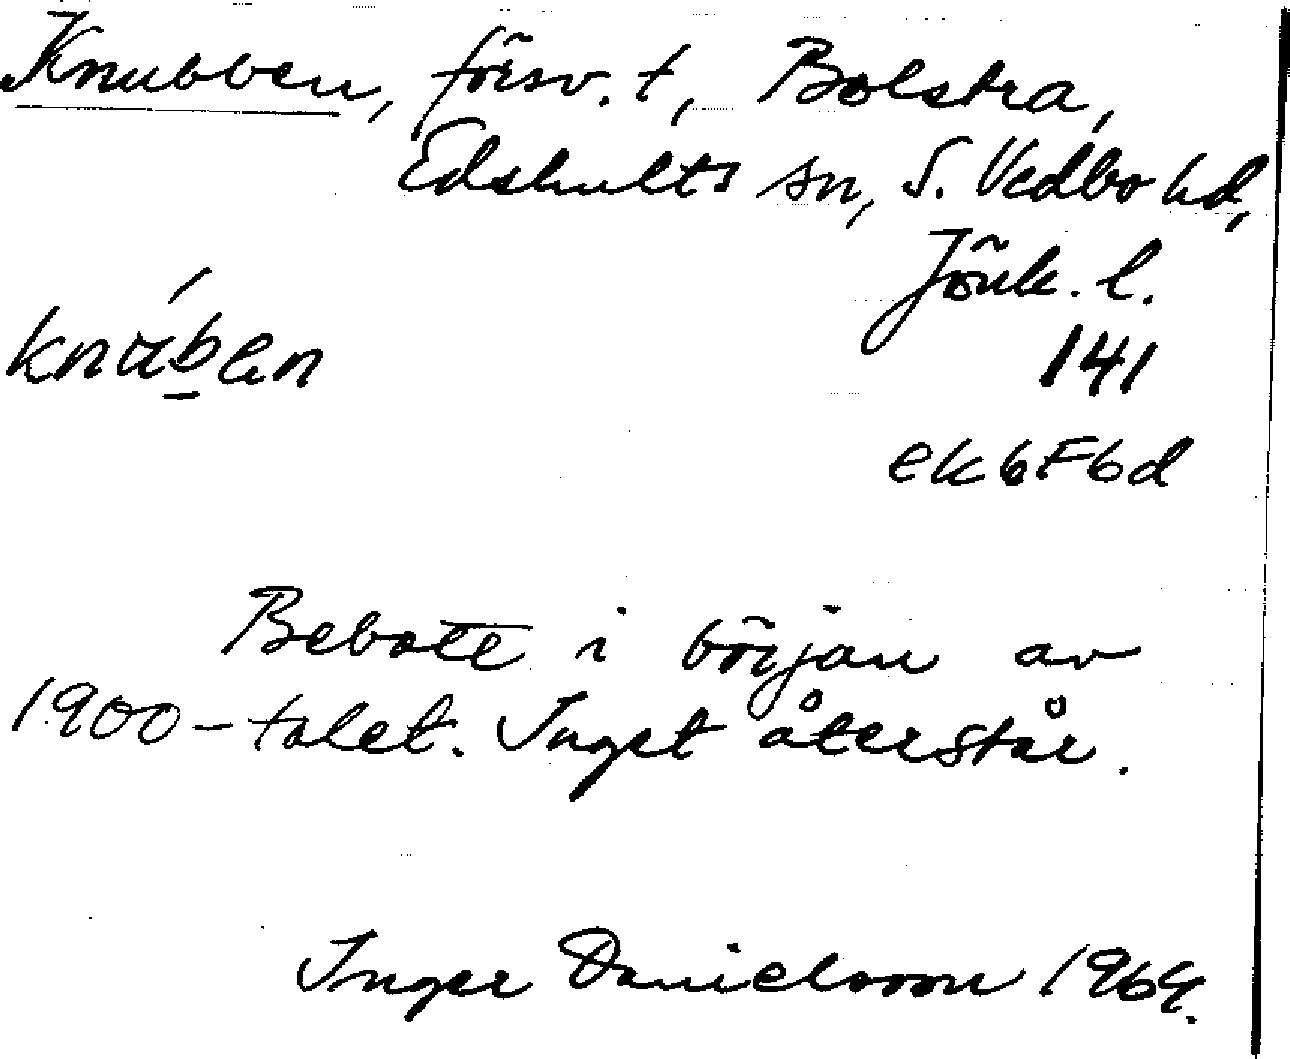 Knubben, försv. t, Bolstra,
Edshults sn, S. Vedbo hd,
Jönk. l.
knúb̲en
141
ek6F6d
Bebott i början av
1900-talet. Inget återstår.
Inger Danielsson 1964.